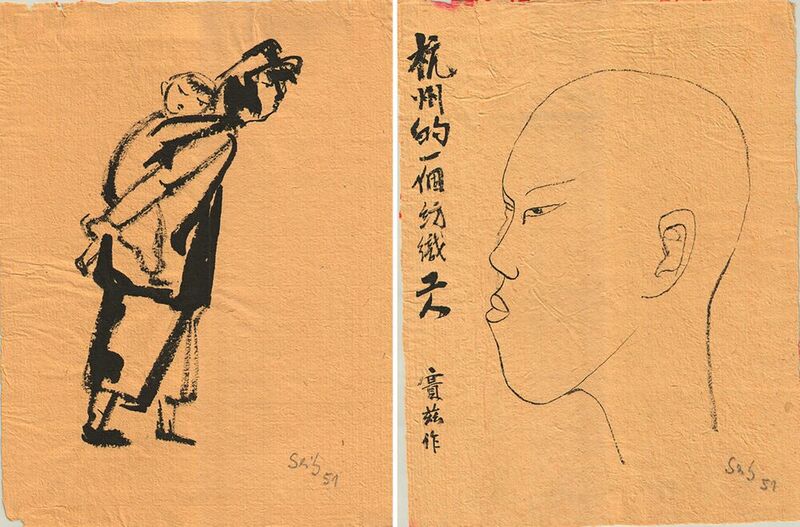 Seitz
51
杭州的一個紡織工人
賽兹作
Seitz
51